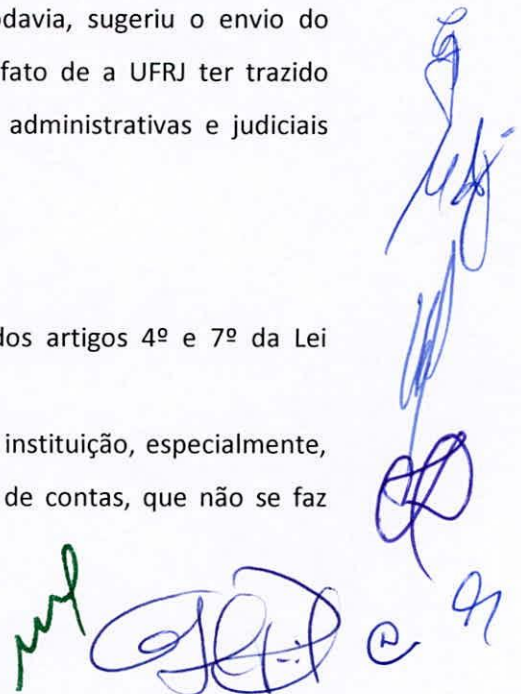 davia, sugeriu o envio do
fato de a UFRJ ter trazido
administrativas e judiciais
dos artigos 4º e 7º da Lei
instituição, especialmente,
de contas, que não se faz